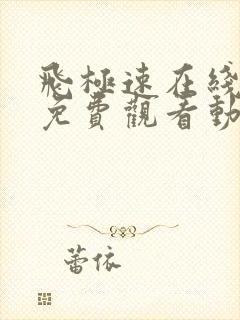 飛極速在綫
免費觀看動
蕾依